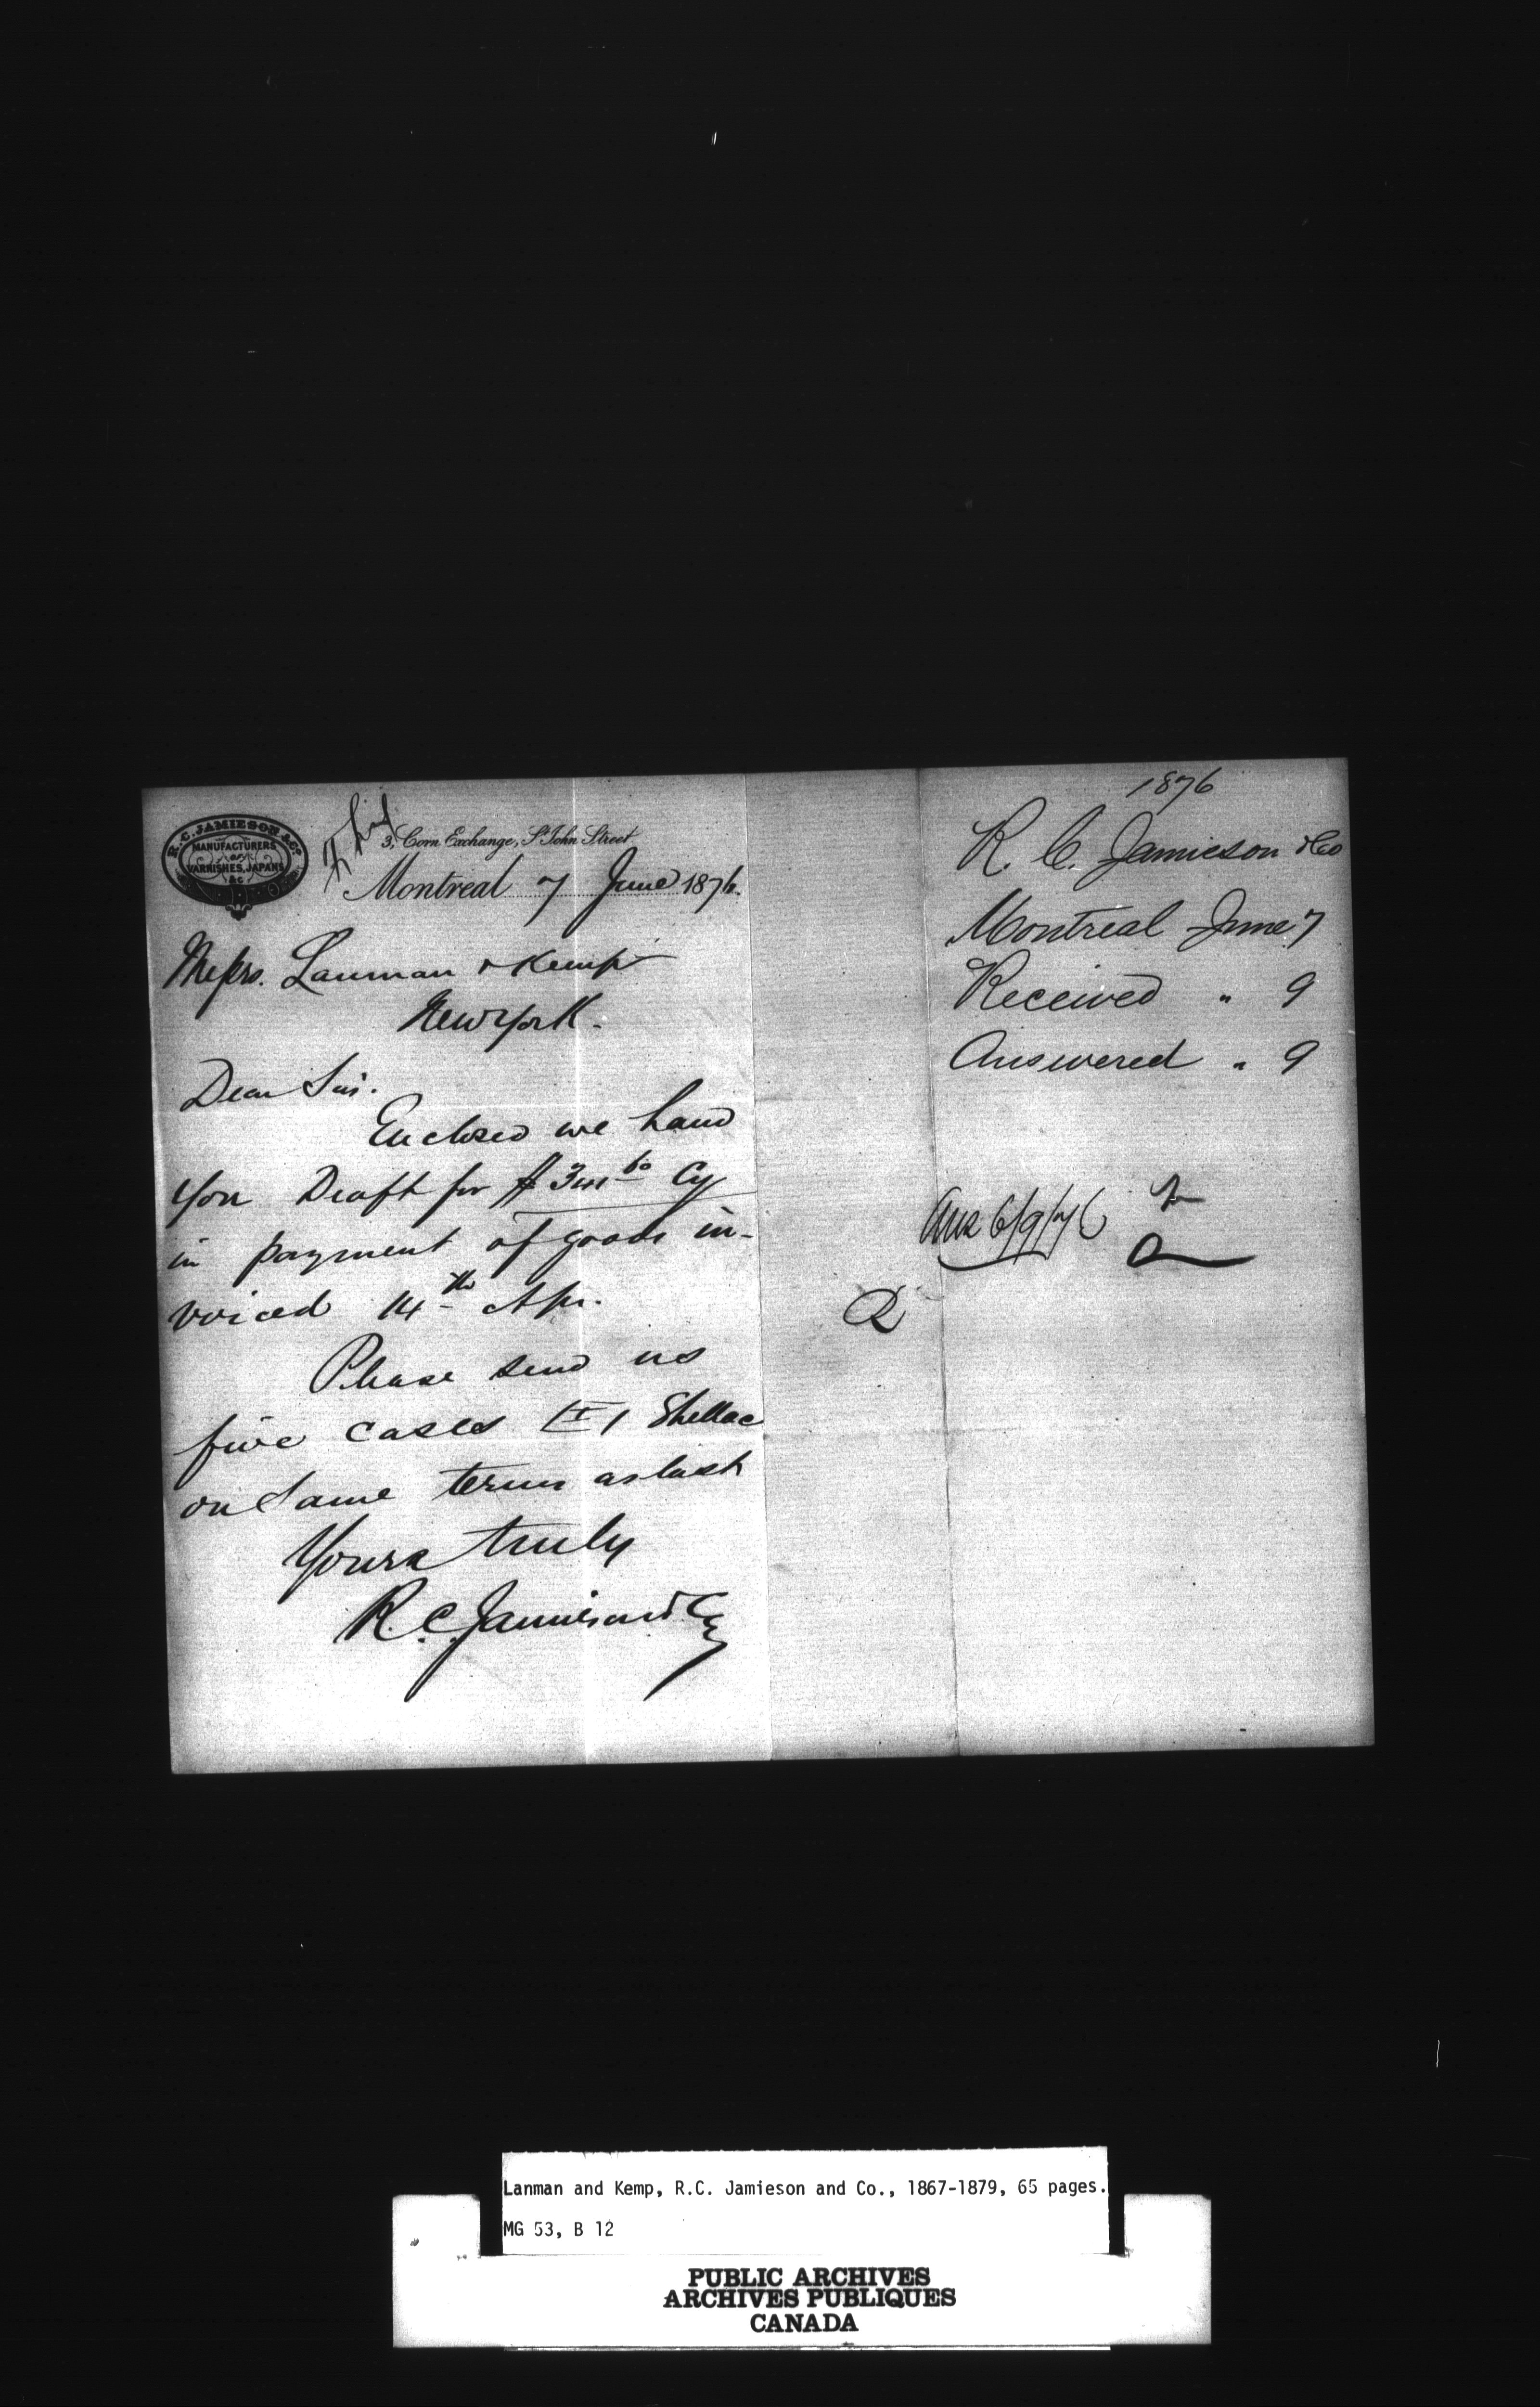 R. C. JAMIESON & Co.
MANUFACTURERS
OF
VARNISHES, JAPANS
&C
3, Corn Exchange, St. John Street
Montreal 7 June 1876.
Messrs. Lanman & Kemp
New York.
Dear Sirs.
Enclosed we hand
you Draft for $ Cy
in payment of goods in-
voiced 14th Apr.
Please send us
five cases 1 Shellac
on same terms as last
Yours truly
R. C. Jamieson & Co
1876
R. C. Jamieson & Co
Montreal June 7
Received " 9
Answered " 9
Ans 6/9/76
Lanman and Kemp, R.C. Jamieson and Co., 1867-1879, 65 pages.
MG 53, B 12
PUBLIC ARCHIVES
ARCHIVES PUBLIQUES
CANADA